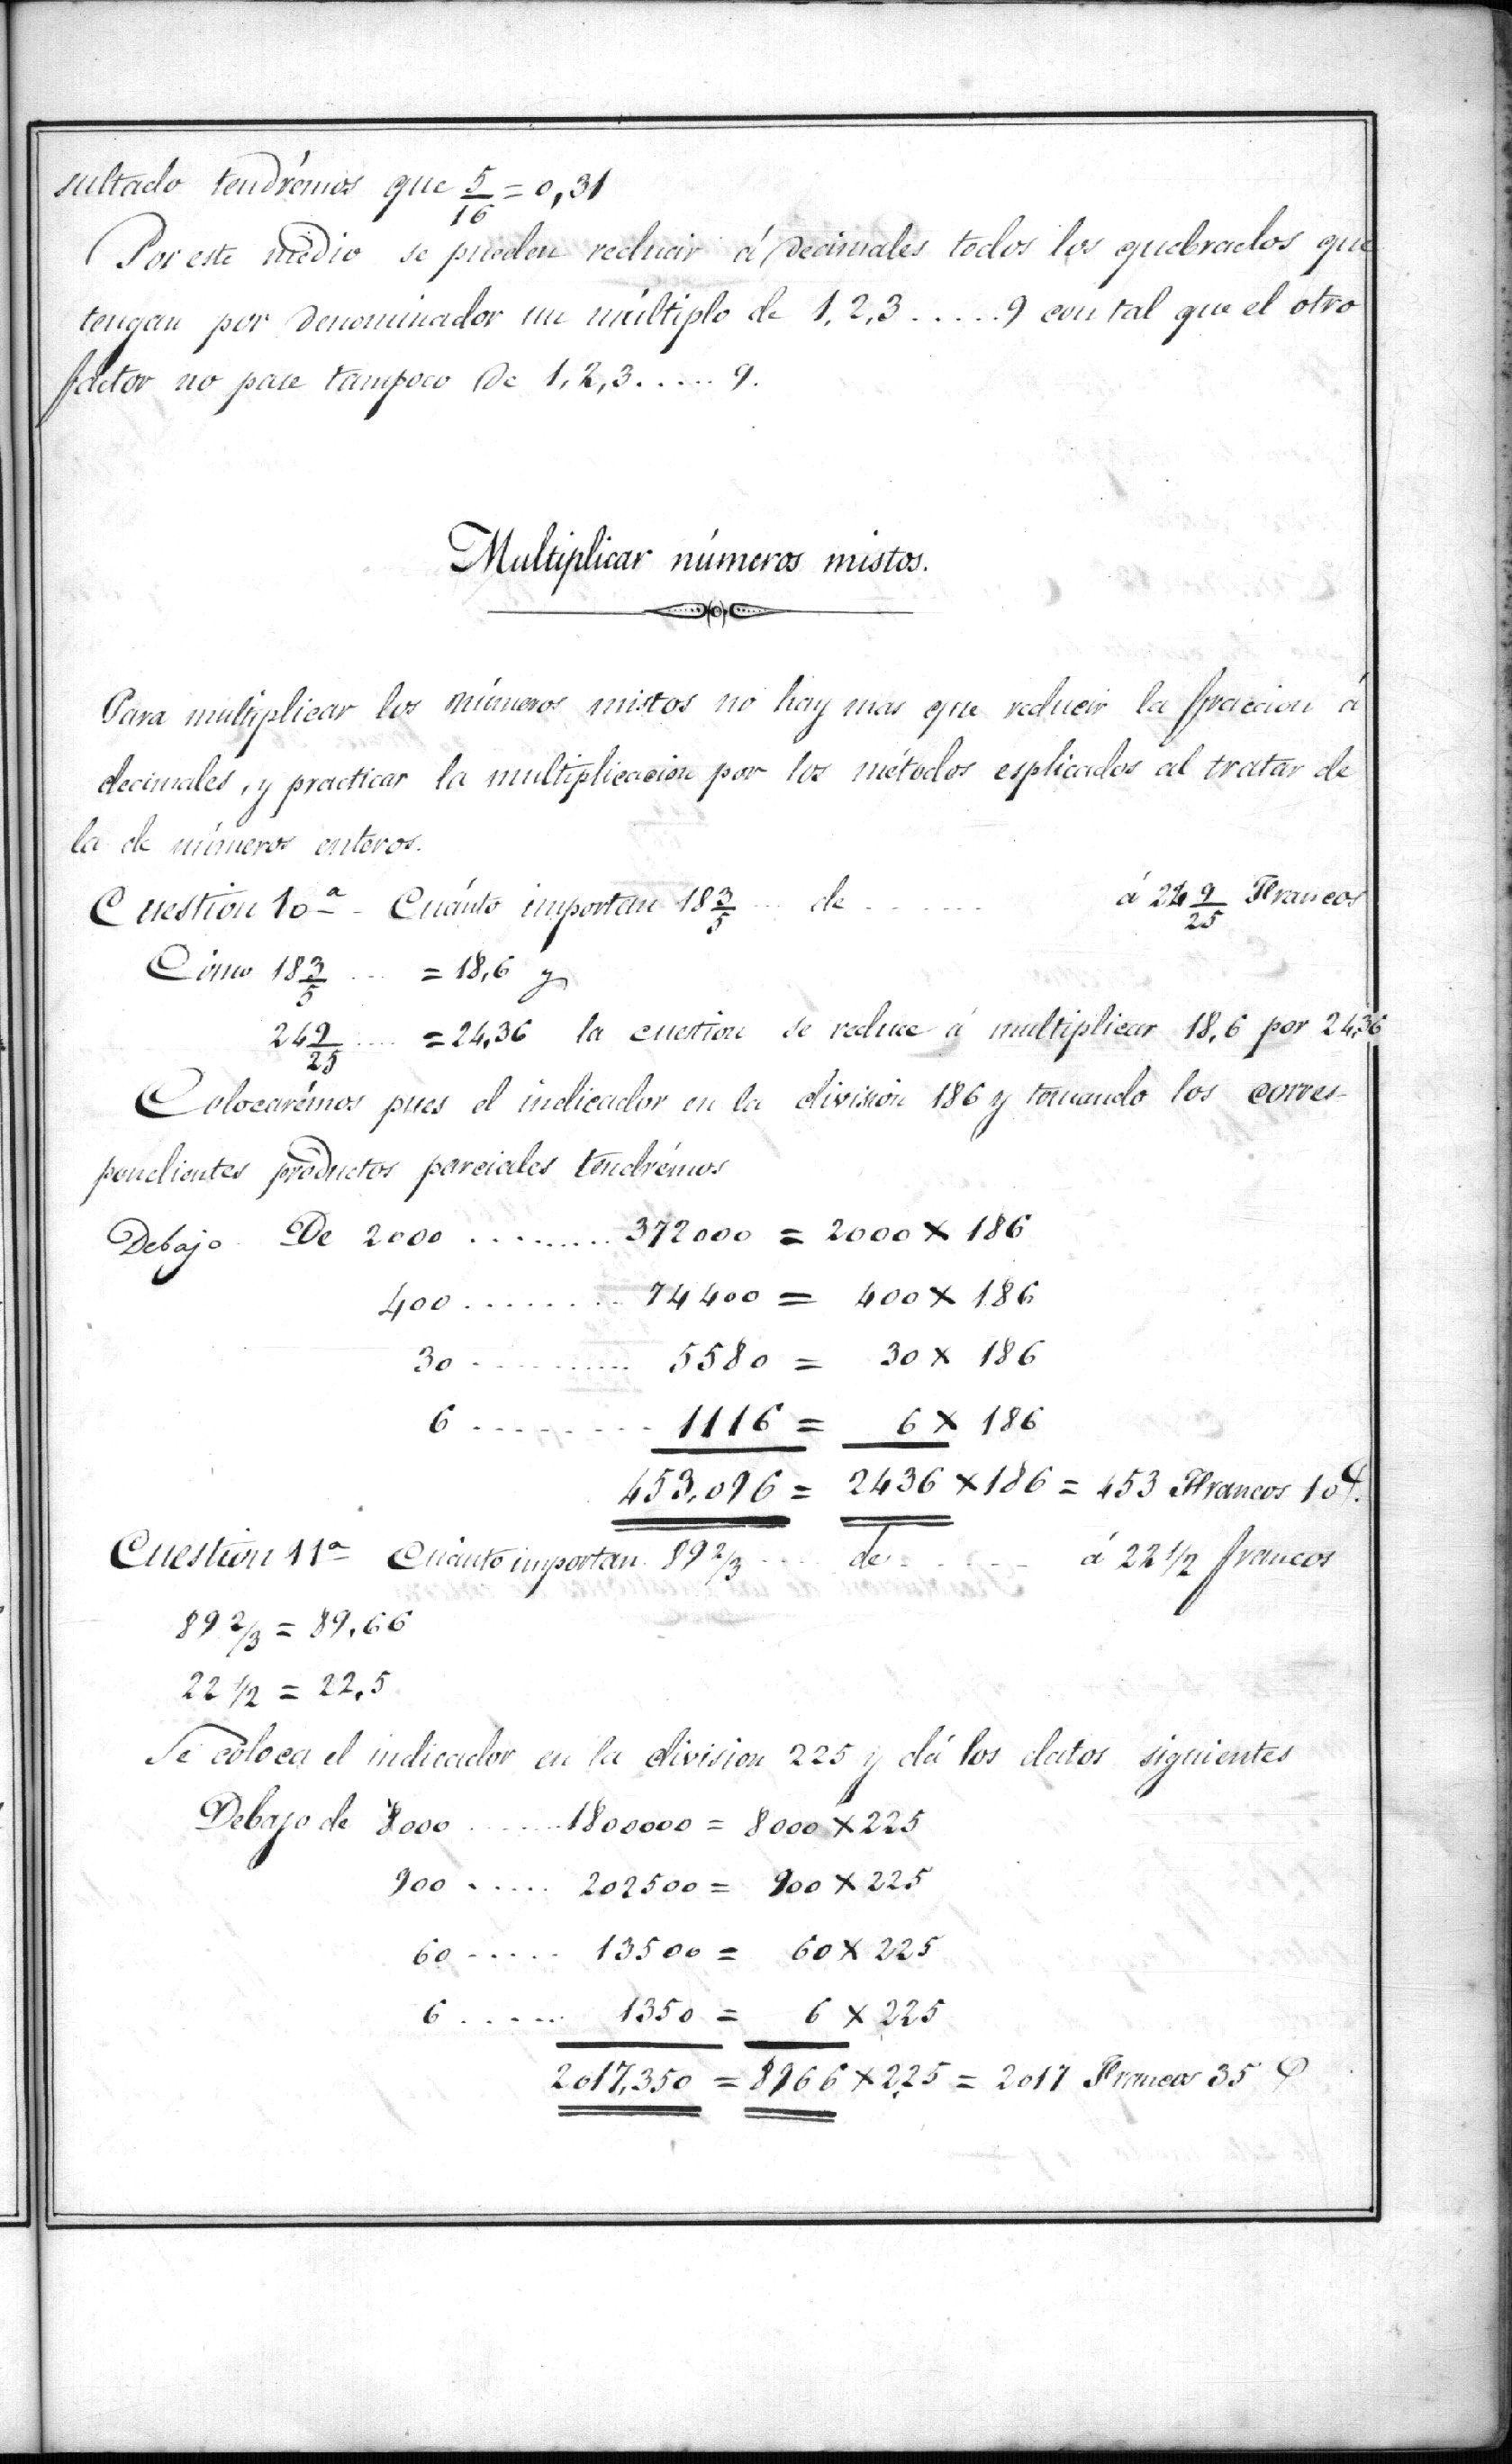 sultado tendrémos que 5/16 = 0,31
Por este médio se pueden reducir á decimales todos los quebrados que
tengan por denominador un múltiplo de 1,2,3.....9 con tal que el otro
factor no pase tampoco de 1,2,3.....9.
Multiplicar números mistos.
Para multiplicar los números mistos no hay mas que reducir la fraccion á
decimales, y practicar la multiplicacion por los métodos esplicados al tratar de
la de números enteros.
Cuestion 10ª - Cuánto importan 18 3/5 ... de ...... á 24 9/25 Francos
Cómo 18 3/5 ... = 18,6 y
24 9/25 .... = 24,36 la cuestion se reduce á multiplicar 18,6 por 24,36
Colocarémos pues el indicador en la division 186 y tomando los corres-
pondientes productos parciales tendrémos
Debajo De 2000 ......... 372000 = 2000 × 186
400 ........ 74400 = 400 × 186
30 .......... 5580 = 30 × 186
6 ......... 1116 = 6 × 186
453,096 = 2436 × 186 = 453 Francos 10
Cuestion 11ª Cuánto importan 89 2/3 .... de ...... á 22 1/2 francos
89 2/3 = 89,66
22 1/2 = 22,5
Se coloca el indicador en la division 225 y dá los datos siguientes
Debajo de 8000 ...... 1800000 = 8000 × 225
900 ..... 202500 = 900 × 225
60 ..... 13500 = 60 × 225
6 ...... 1350 = 6 × 225
2017,350 = 8966 × 225 = 2017 Francos 35